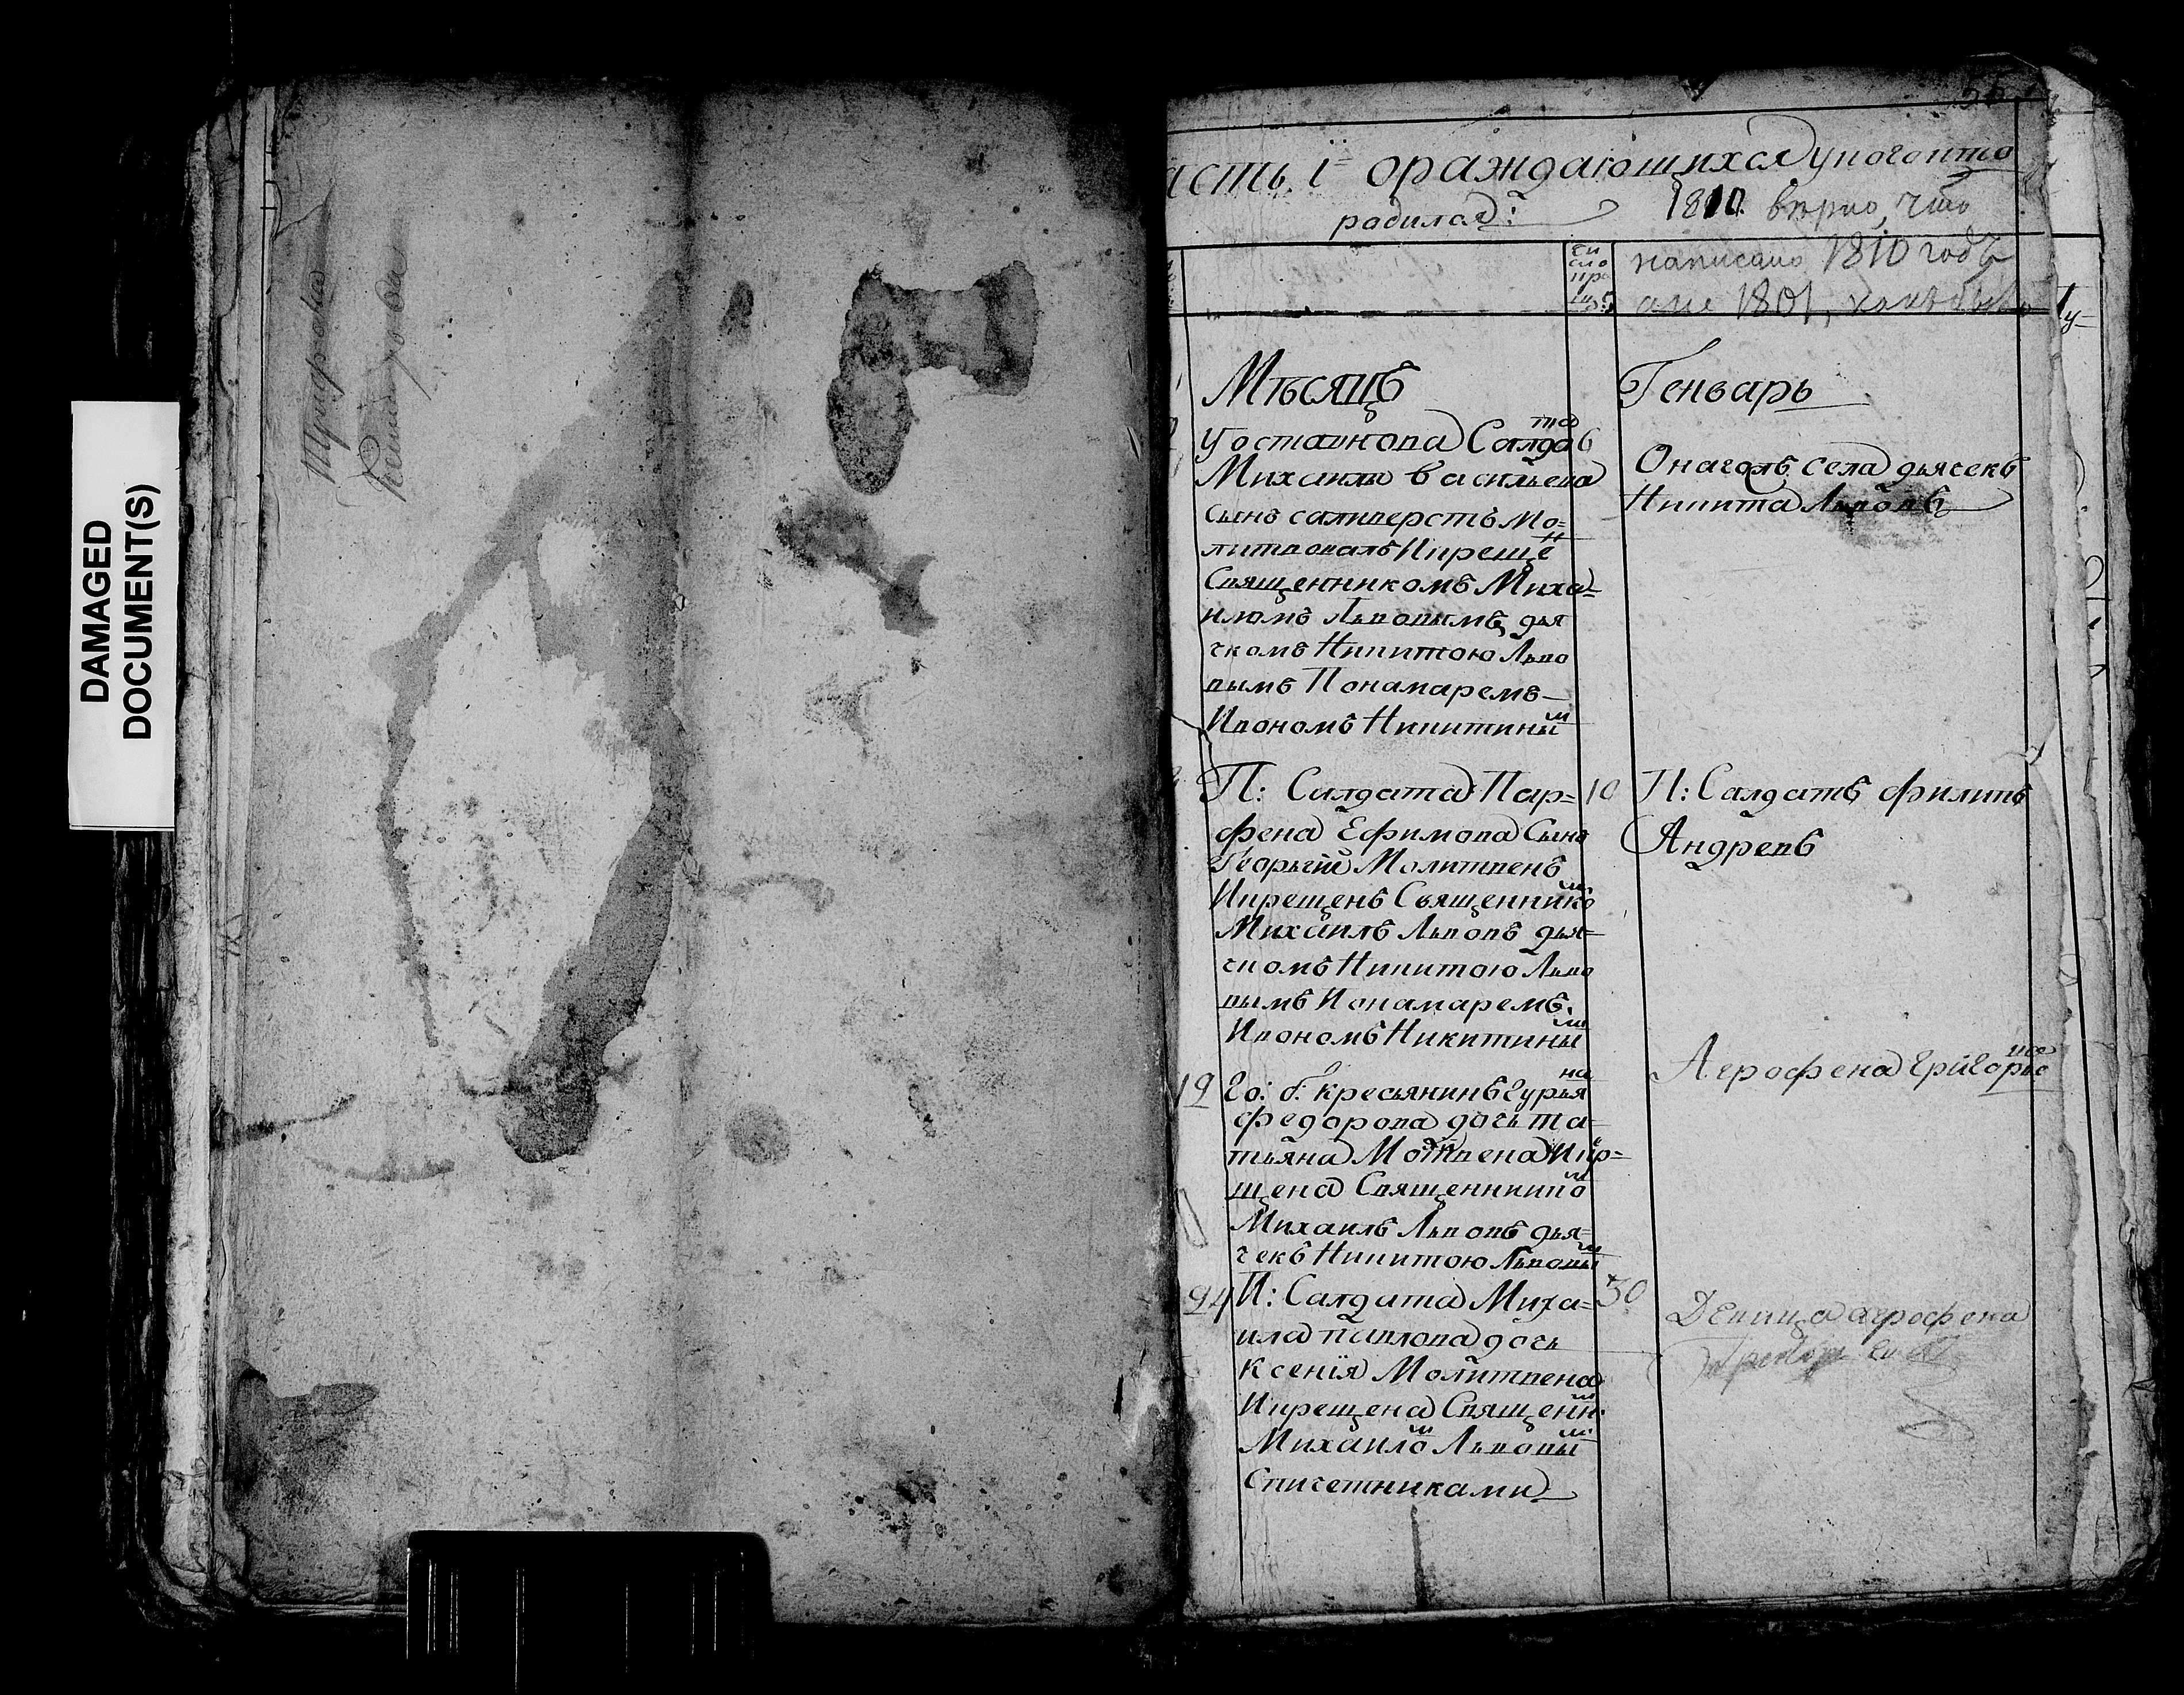 DAMAGED
DOCUMENT(S)
55
асть 1 ораждающихся уногокто
родился:
1810. верно, что
написано 1810 годъ
а не 1801,
чи
сло
кре
Мѣсяцъ
Генварь
Уоставнова Салдата 6
Михаила васильева
сынъ саливерстъ Мо=
литвовалъ Икрещен
Священникомъ Миха=
иломъ Львовымъ дья
чкомъ Никитою Льво
вымъ Понамаремъ
Ивономъ Никитиным
Оначолъ села дьячекъ
Никита Львовъ
П: Салдата Пар= 10
фена Ефимова Сынъ
Георьгий Молитвенъ
Икрещенъ Священником
Михаилъ Львовъ дья=
чкомъ Никитою Льво
вымъ Понамаремъ
Ивономъ Никитиным
П: Салдатъ филипъ
Андревъ
19 Ео: б: кресьянинъ Гурьяна
федорова дочь та=
тьяна Мотвена Икр=
щена Священником
Михаилъ Львовъ дья=
чекъ Никитою Львовым
Агрофена григорьева
24 И: Салдата Миха= 30
ила павлова дочь
ксенія Молитвена
Икрещена Священ.
Михаилом Львовым
Спричетниками
Девица агрофена